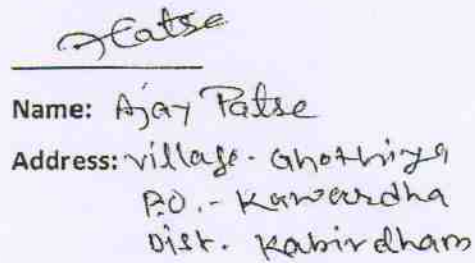 Name: Ajay Patse
Address: Village - Ghothiya
P.O. - Kawardha
Dist. Kabirdham